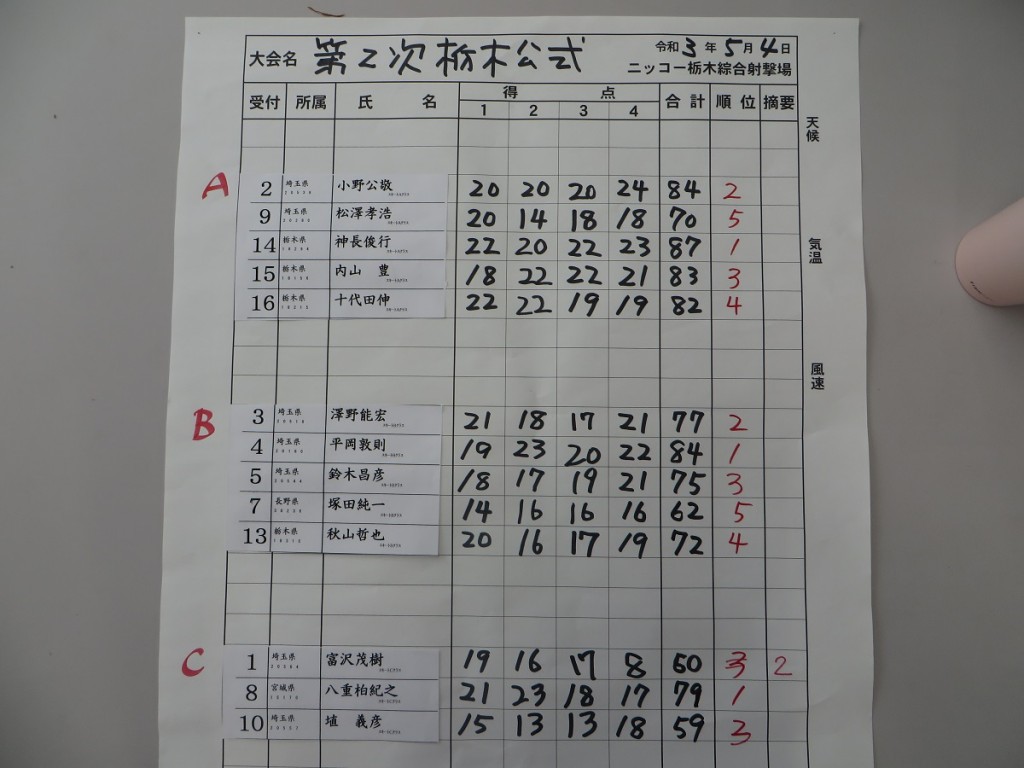 大会名 第2次栃木公式 令和3年5月4日
ニッコー栃木綜合射撃場
受付 所属 氏 名 得 点 合計 順位 摘要
1 2 3 4
天候
A
2 埼玉県 小野公敬 20 20 20 24 84 2
9 埼玉県 松澤孝浩 20 14 18 18 70 5
14 栃木県 神長俊行 22 20 22 23 87 1
気温
15 栃木県 内山 豊 18 22 22 21 83 3
16 栃木県 十代田伸 22 22 19 19 82 4
風速
B
3 埼玉県 澤野能宏 21 18 17 21 77 2
4 埼玉県 平岡敦則 19 23 20 22 84 1
5 埼玉県 鈴木昌彦 18 17 19 21 75 3
7 長野県 塚田純一 14 16 16 16 62 5
13 栃木県 秋山哲也 20 16 17 19 72 4
C
1 埼玉県 富沢茂樹 19 16 17 8 60 3 2
8 宮城県 八重柏紀之 21 23 18 17 79 1
10 埼玉県 埴 義彦 15 13 13 18 59 3